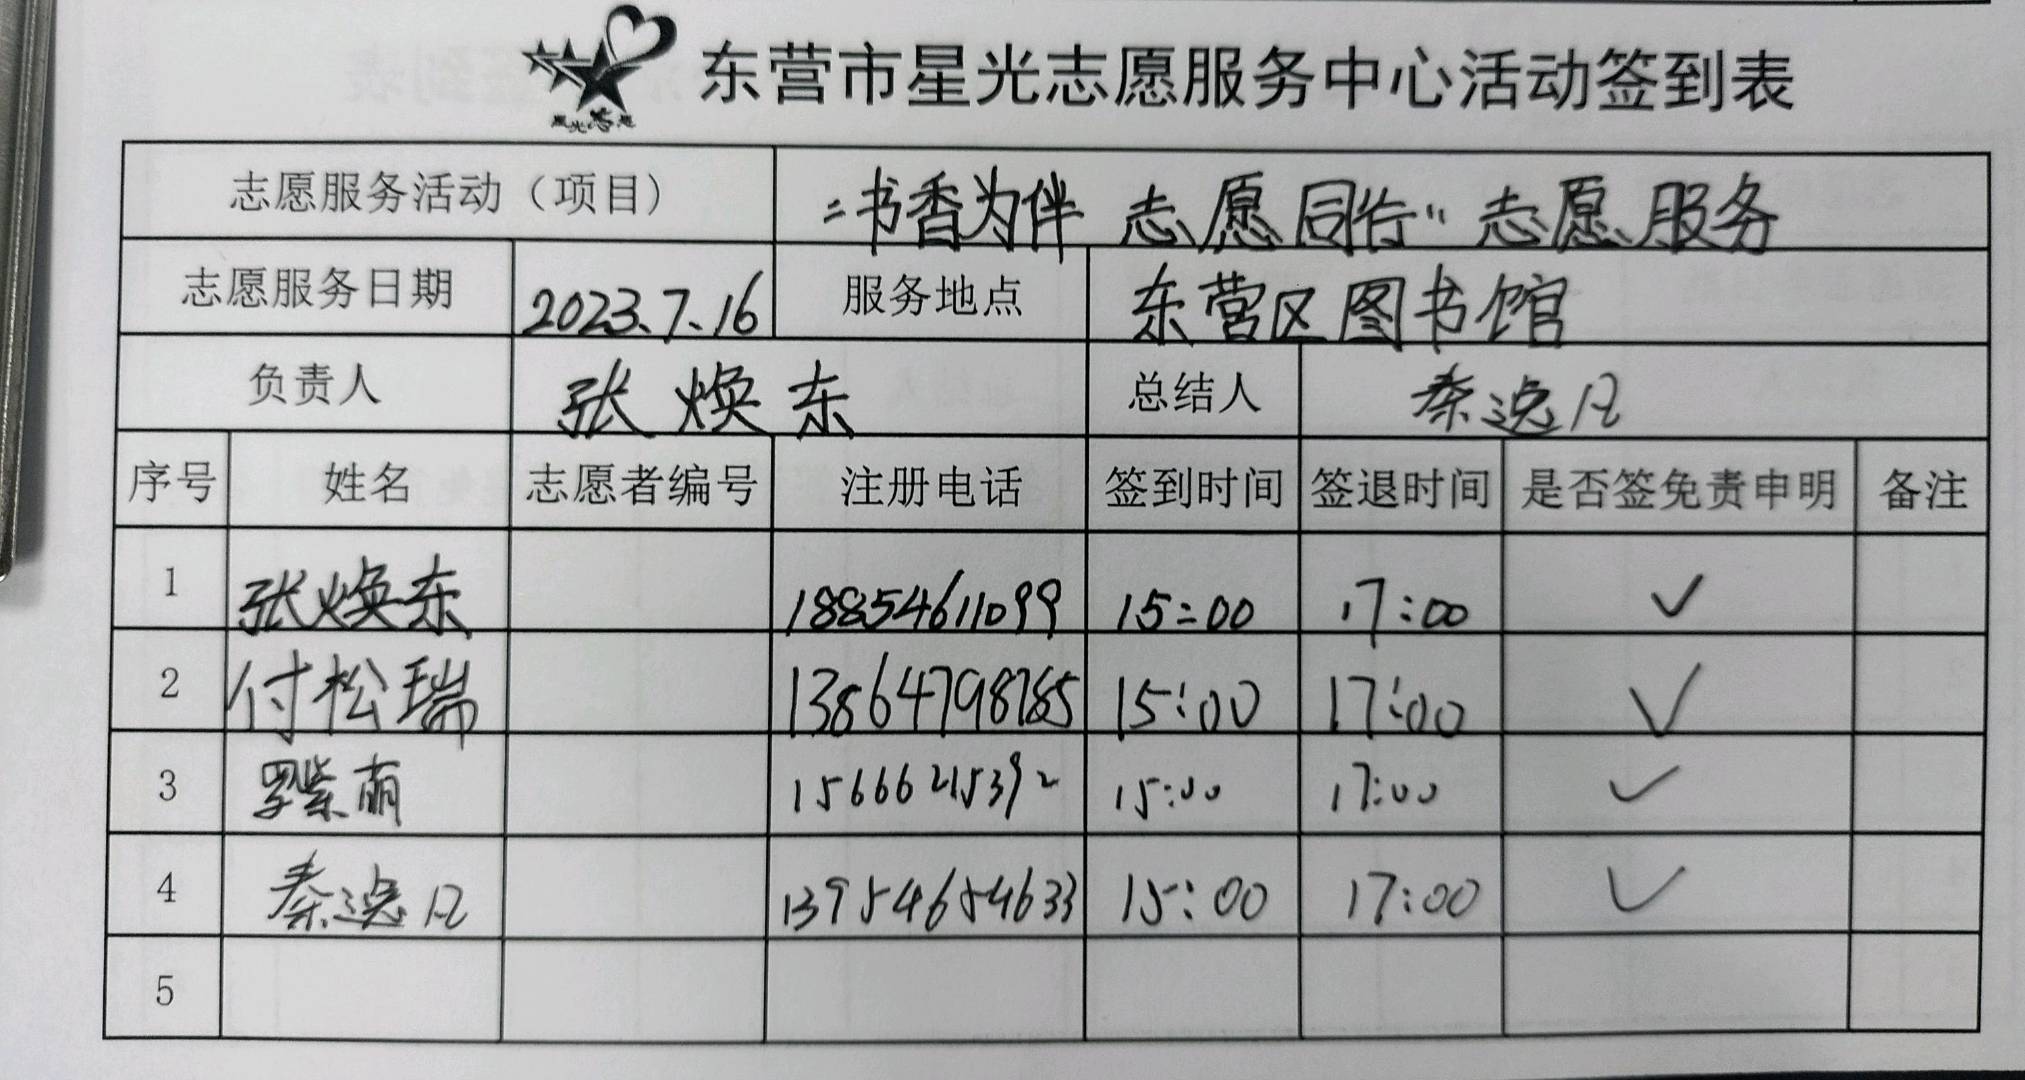 星光志愿
东营市星光志愿服务中心活动签到表
志愿服务活动（项目） “书香为伴 志愿同行”志愿服务
志愿服务日期 2023.7.16 服务地点 东营区图书馆
负责人 张焕东 总结人 秦逸凡
序号 姓名 志愿者编号 注册电话 签到时间 签退时间 是否签免责申明 备注
1 张焕东 18854611099 15:00 17:00 ✓
2 付松瑞 13864798785 15:00 17:00 ✓
3 罗紫萌 15666215392 15:00 17:00 ✓
4 秦逸凡 13954654633 15:00 17:00 ✓
5